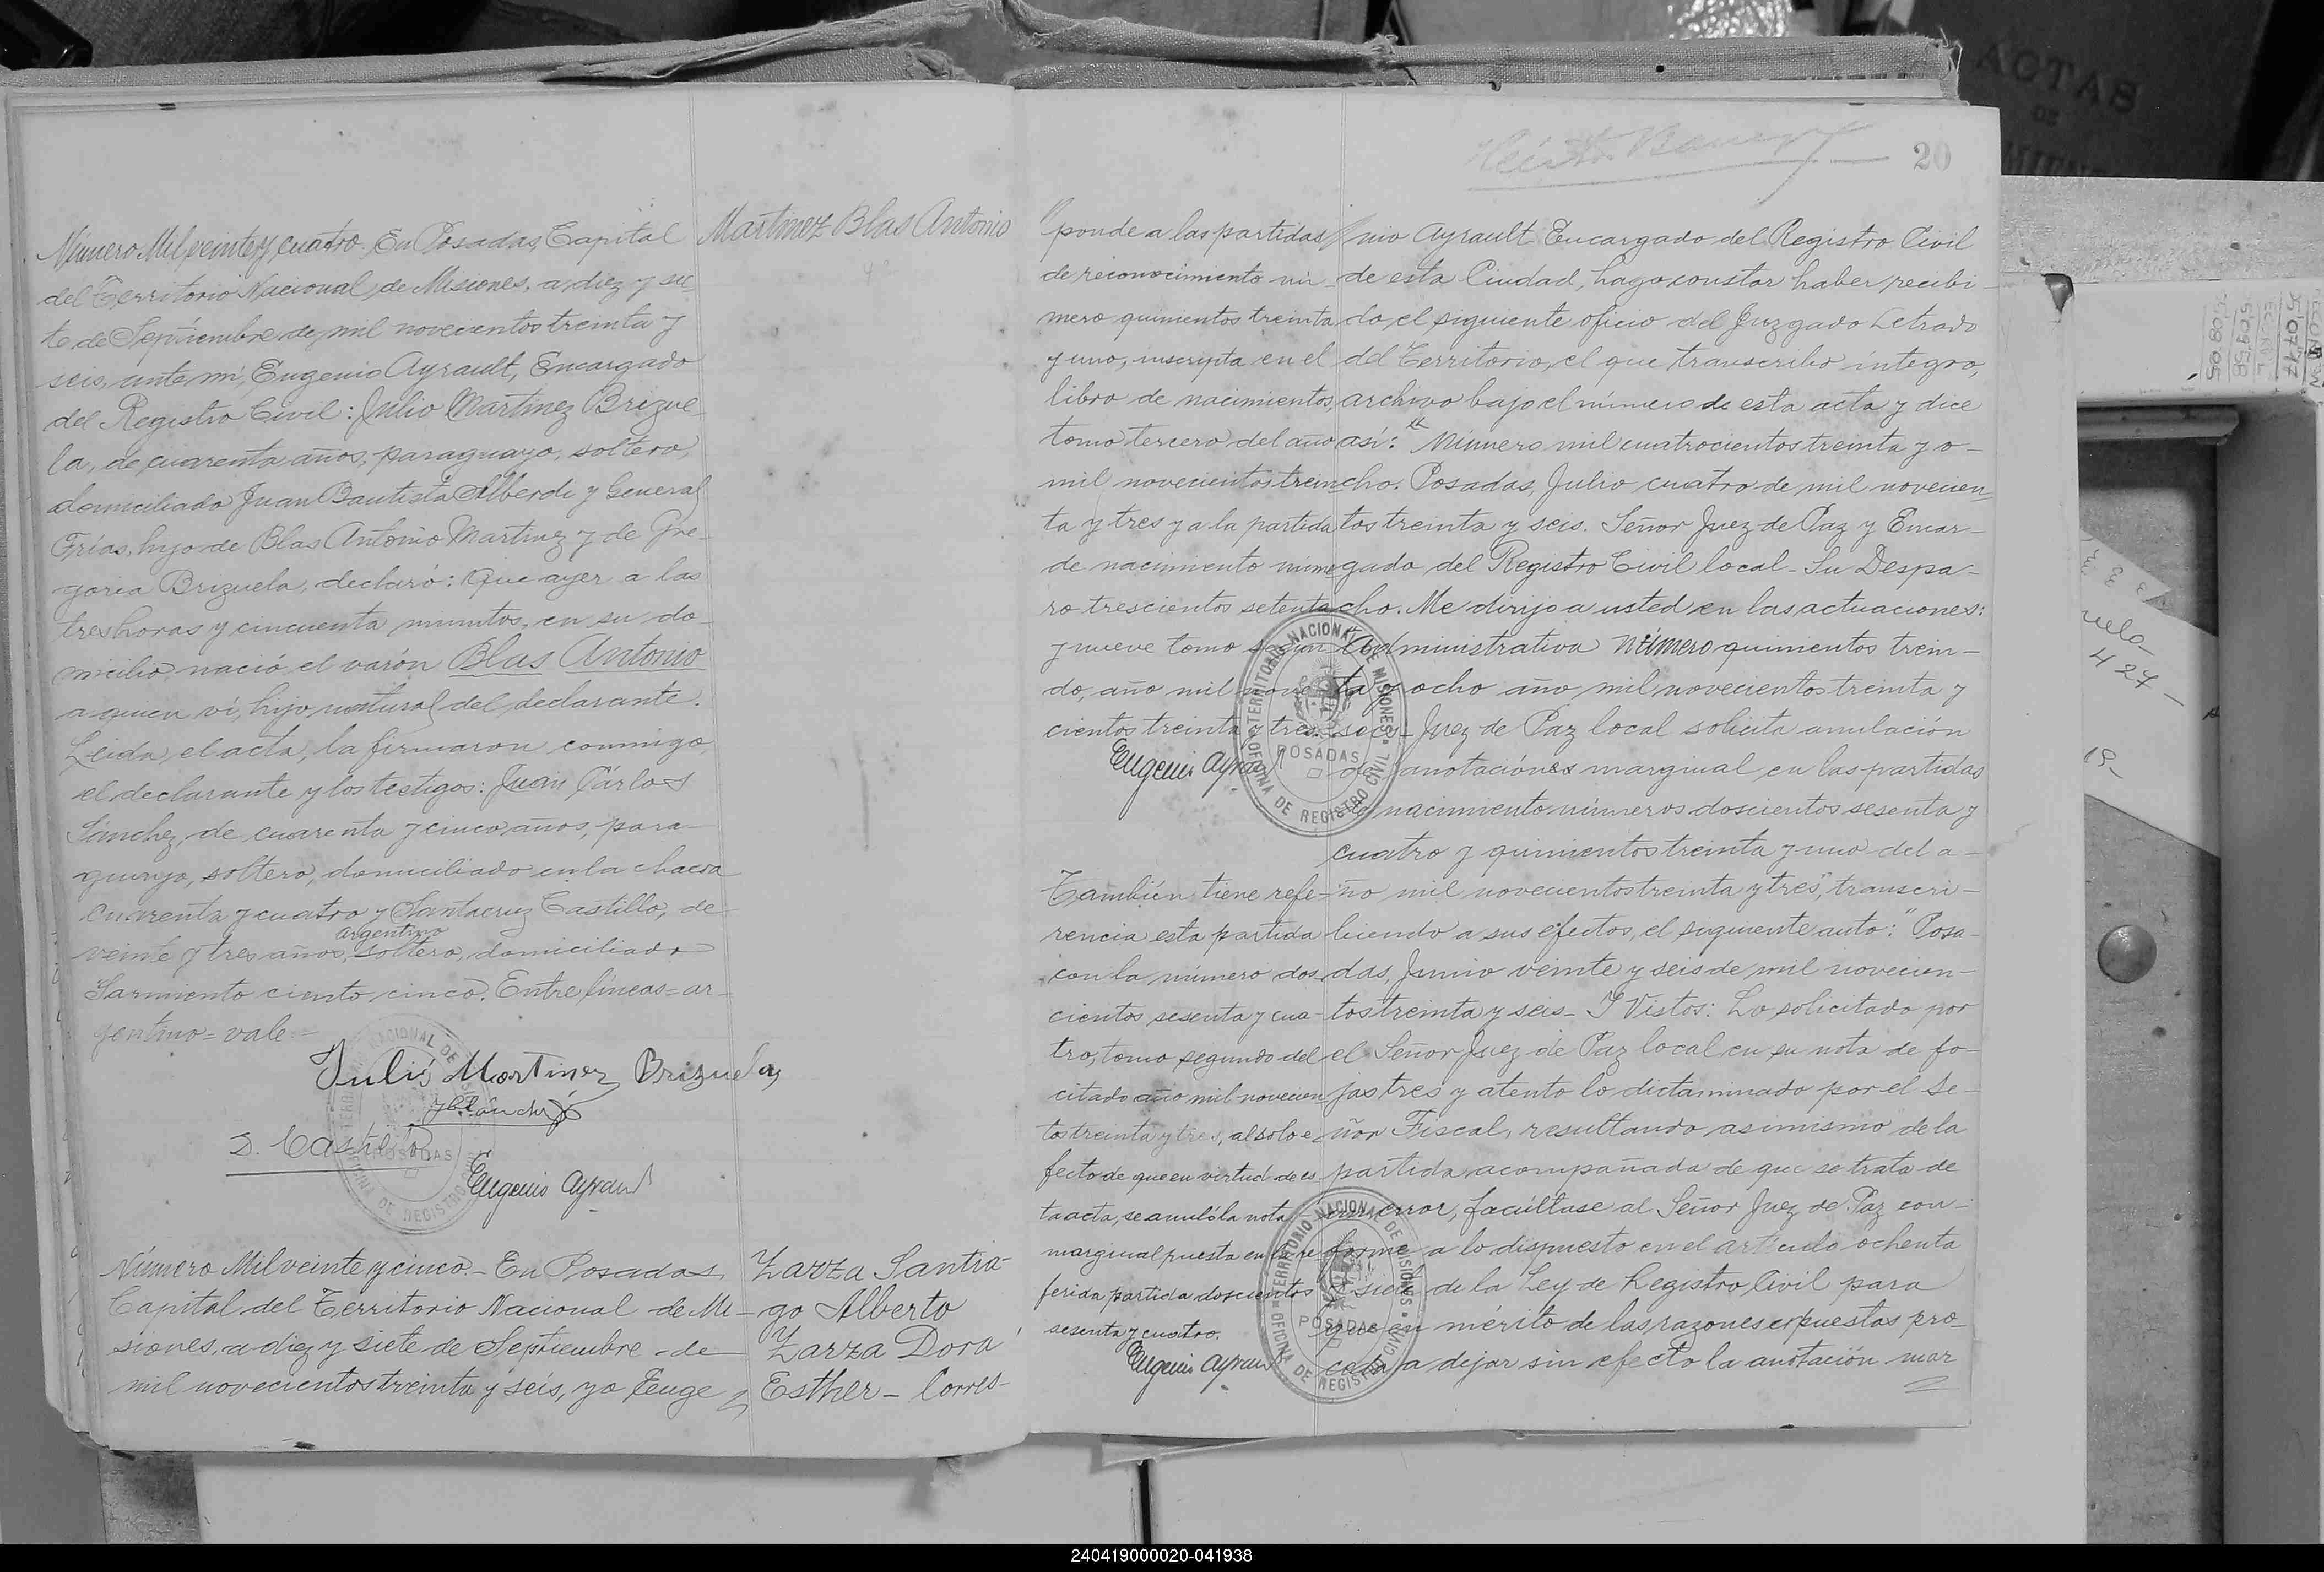 Número Mil veinte y cuatro. En Posadas, Capital
del Territorio Nacional de Misiones, a diez y sie
te de Septiembre de mil novecientos treinta y
seis, ante mí, Eugenio Ayrault, Encargado
del Registro Civil: Julio Martinez Brizue
la, de cuarenta años, paraguayo, soltero,
domiciliado Juan Bautista Alberdi y General
Frías, hijo de Blas Antonio Martinez y de Gre-
goria Brizuela, declaró: Que ayer a las
tres horas y cincuenta minutos, en su do-
micilio nació el varón Blas Antonio
a quien ví, hijo natural del declarante.
Leida el acta, la firmaron conmigo,
el declarante y los testigos: Juan Cárlos
Sánchez, de cuarenta y cinco años, para-
guayo, soltero, domiciliado en la chacra
cuarenta y cuatro y Santacruz Castillo, de
argentino
veinte y tres años, soltero, domiciliado
Sarmiento ciento cinco. Entre líneas=ar-
gentino=vale=
Julio Martinez Brizuela
S. Castillo
Eugenio Ayrault
Martinez Blas Antonio
Número Mil veinte y cinco.- En Posadas,
Capital del Territorio Nacional de Mi-
siones, a diez y siete de Septiembre de
mil novecientos treinta y seis, yo Euge
Zarza Santia-
go Alberto
Zarza Dora
Esther - Corres-
20
ponde a las partidas
de reconocimiento nú-
mero quinientos treinta
y uno, inscripta en el
libro de nacimientos,
tomo tercero del año
mil novecientos trein
ta y tres y a la partida
de nacimiento núme
ro trescientos setenta
y nueve tomo segun
do, año mil nove
cientos treinta y tres.
Eugenio Ayrault
También tiene refe-
rencia esta partida
con la número dos
cientos sesenta y cua-
tro, tomo segundo del
citado año mil novecien
tos treinta y tres, al solo e
fecto de que en virtud de es
ta acta, se anuló la nota
marginal puesta en la re
ferida partida doscientos
sesenta y cuatro.
Eugenio Ayrault
nio Ayrault Encargado del Registro Civil
de esta Ciudad, hago constar haber recibi-
do el siguiente oficio del Juzgado Letrado
del Territorio, el que transcribo íntegro,
archivo bajo el número de esta acta y dice
así: "Número mil cuatrocientos treinta y o-
cho. Posadas, Julio cuatro de mil novecien
tos treinta y seis. Señor Juez de Paz y Encar-
gado del Registro Civil local - Su Despa-
cho. Me dirijo a usted en las actuaciones:
"Administrativa Número quinientos trein-
ta y ocho año mil novecientos treinta y
seis - Juez de Paz local solicita anulación
de anotaciónes marginal en las partidas
de nacimiento números doscientos sesenta y
cuatro y quinientos treinta y uno del a-
ño mil novecientos treinta y tres", transcri-
biendo a sus efectos, el siguiente auto: "Posa-
das, Junio veinte y seis de mil novecien-
tos treinta y seis - Y Vistos: Lo solicitado por
el Señor Juez de Paz local en su nota de fo-
jas tres y atento lo dictaminado por el Se-
ñor Fiscal, resultando asimismo de la
partida acompañada de que se trata de
un error, facúltase al Señor Juez de Paz con-
forme a lo dispuesto en el artículo ochenta
y siete de la Ley de Registro Civil para
que en mérito de las razones expuestas pro-
ceda a dejar sin efecto la anotación mar
TERRITORIO NACIONAL DE MISIONES
OFICINA DE REGISTRO CIVIL
POSADAS
TERRITORIO NACIONAL DE MISIONES
OFICINA DE REGISTRO CIVIL
POSADAS
ACTAS
DE
240419000020-041938